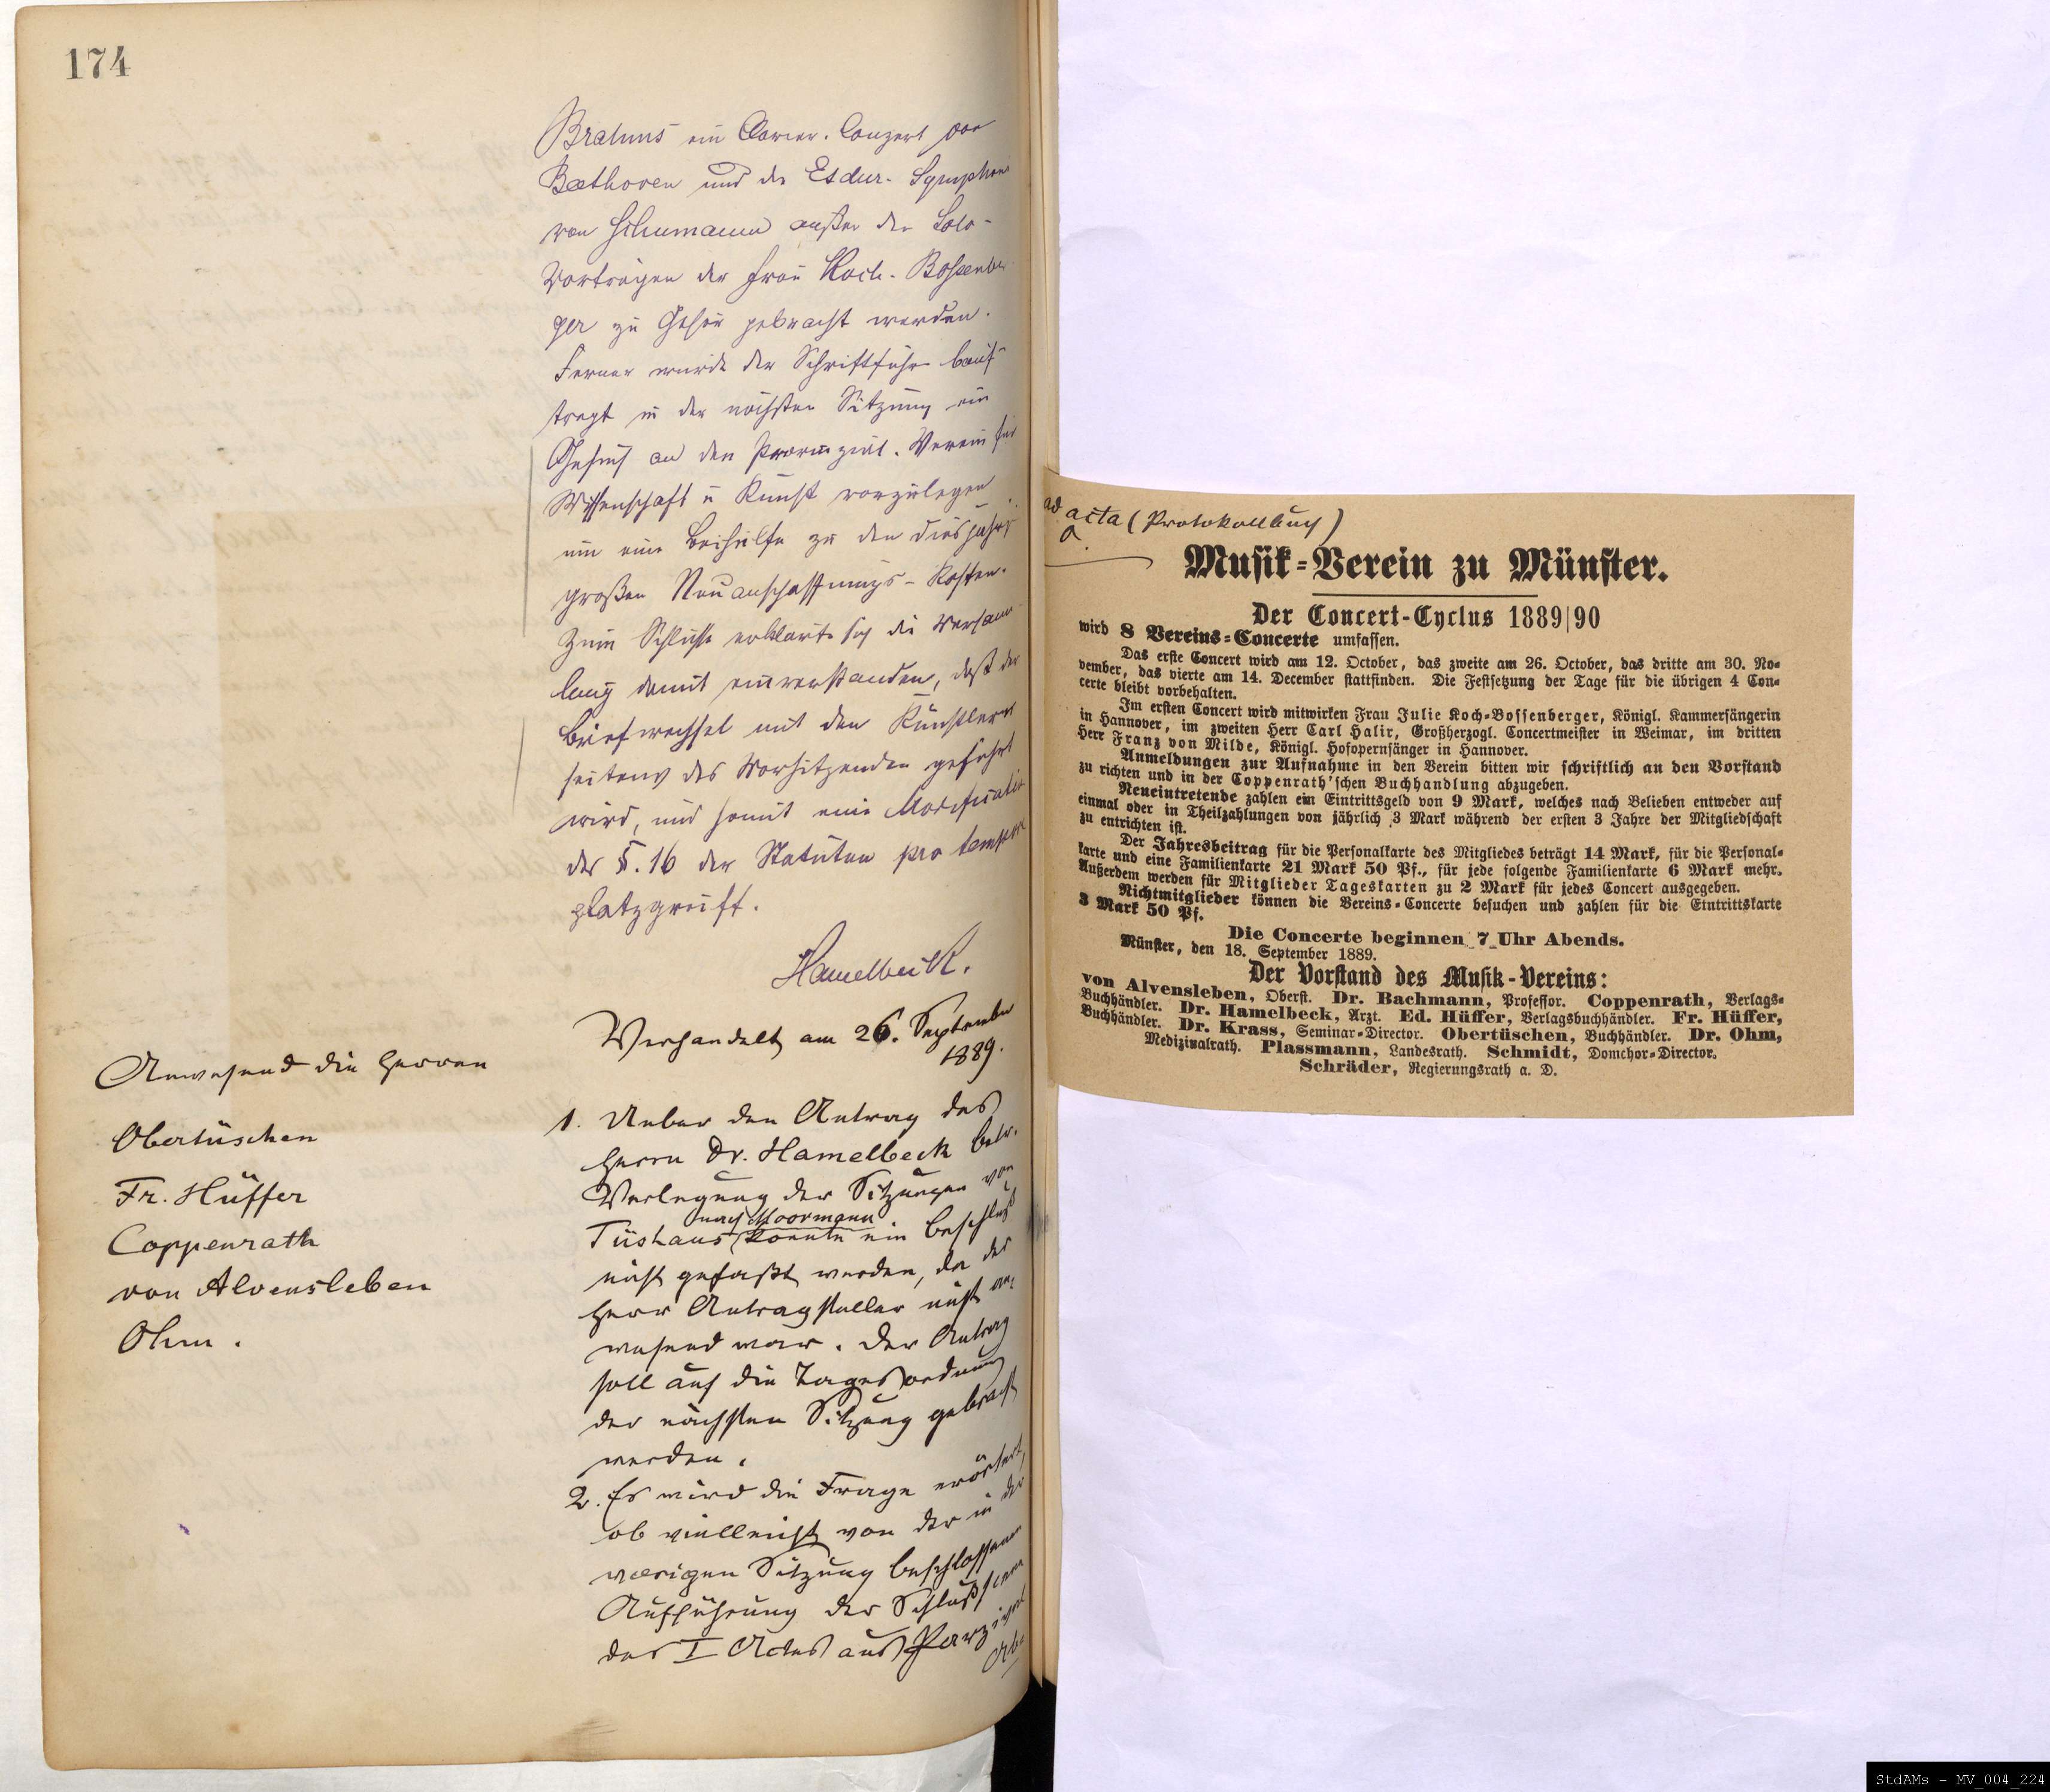 174
Brahms ein Clavier-Conzert von
Beethoven und die Esdur-Symphonie
von Schumann außer den Solo-
Vorträgen der Frau Koch-Bossenber-
ger zu Gehör gebracht werden.
Ferner wurde der Schriftführer beauf-
tragt in der nächsten Sitzung ein
Gesuch an den Provinzial-Verein für
Wissenschaft u Kunst vorzulegen
um eine Beihülfe zu den diesjähr.
großen Neuanschaffungs-Kosten.
Zum Schlusse erklärte sich die Versamm-
lung damit einverstanden, daß der
Briefwechsel mit den Künstlern
seitens des Vorsitzenden geführt
wird, und somit eine Modification
des §. 16 der Statuten pro tempore
platzgreift.
Hamelbeck.
Verhandelt am 26. September
1889.
Anwesend die Herren
Obertüschen
Fr. Hüffer
Coppenrath
von Alvensleben
Ohm.
1. Ueber den Antrag des
Herrn Dr. Hamelbeck betr.
Verlegung der Sitzungen von
nach Moormann
Tüshaus konnte ein Beschluß
nicht gefaßt werden, da der
Herr Antragsteller nicht an-
wesend war. Der Antrag
soll auf die Tagesordnung
der nächsten Sitzung gebracht
werden.
2. Es wird die Frage erörtert,
ob vielleicht von der in der
vorigen Sitzung beschlossenen
Aufführung der Schlußscene
des I Actes aus Parzival
ad acta (Protokollbuch)
Musik-Verein zu Münster.
Der Concert-Cyclus 1889|90
wird 8 Vereins-Concerte umfassen.
Das erste Concert wird am 12. October, das zweite am 26. October, das dritte am 30. No-
vember, das vierte am 14. December stattfinden. Die Festsetzung der Tage für die übrigen 4 Con-
certe bleibt vorbehalten.
Im ersten Concert wird mitwirken Frau Julie Koch-Bossenberger, Königl. Kammersängerin
in Hannover, im zweiten Herr Carl Halir, Großherzogl. Concertmeister in Weimar, im dritten
Herr Franz von Milde, Königl. Hofopernsänger in Hannover.
Anmeldungen zur Aufnahme in den Verein bitten wir schriftlich an den Vorstand
zu richten und in der Coppenrath'schen Buchhandlung abzugeben.
Neueintretende zahlen ein Eintrittsgeld von 9 Mark, welches nach Belieben entweder auf
einmal oder in Theilzahlungen von jährlich 3 Mark während der ersten 3 Jahre der Mitgliedschaft
zu entrichten ist.
Der Jahresbeitrag für die Personalkarte des Mitgliedes beträgt 14 Mark, für die Personal-
karte und eine Familienkarte 21 Mark 50 Pf., für jede folgende Familienkarte 6 Mark mehr.
Außerdem werden für Mitglieder Tageskarten zu 2 Mark für jedes Concert ausgegeben.
Nichtmitglieder können die Vereins-Concerte besuchen und zahlen für die Eintrittskarte
3 Mark 50 Pf.
Die Concerte beginnen 7 Uhr Abends.
Münster, den 18. September 1889.
Der Vorstand des Musik-Vereins:
von Alvensleben, Oberst. Dr. Bachmann, Professor. Coppenrath, Verlags-
Buchhändler. Dr. Hamelbeck, Arzt. Ed. Hüffer, Verlagsbuchhändler. Fr. Hüffer,
Buchhändler. Dr. Krass, Seminar-Director. Obertüschen, Buchhändler. Dr. Ohm,
Medizinalrath. Plassmann, Landesrath. Schmidt, Domchor-Director.
Schräder, Regierungsrath a. D.
StdAMs - MV_004_224